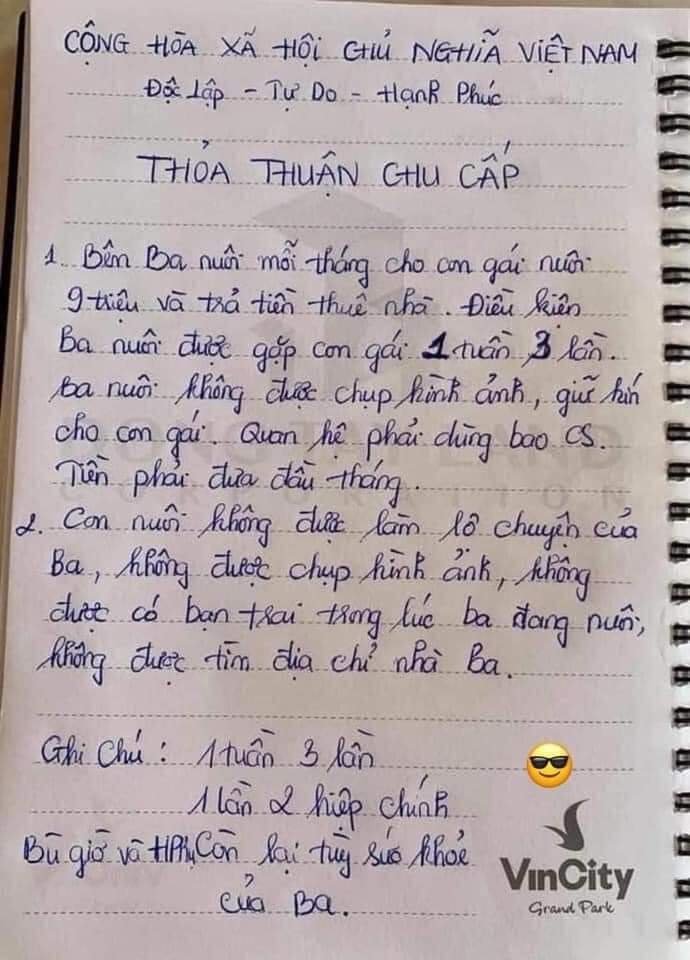 CỘNG HÒA XÃ HỘI CHỦ NGHĨA VIỆT NAM
Độc Lập - Tự Do - Hạnh Phúc
THỎA THUẬN CHU CẤP
1. Bên Ba nuôi mỗi tháng cho con gái nuôi
9 triệu và trả tiền thuê nhà. Điều kiện
Ba nuôi được gặp con gái 1 tuần 3 lần.
Ba nuôi không được chụp hình ảnh, giữ kín
cho con gái. Quan hệ phải dùng bao CS.
Tiền phải đưa đầu tháng.
2. Con nuôi không được làm lộ chuyện của
Ba, không được chụp hình ảnh, không
được có bạn trai trong lúc ba đang nuôi,
không được tìm địa chỉ nhà Ba.
Ghi Chú: 1 tuần 3 lần
1 lần 2 hiệp chính
Bù giờ và HPhụ Còn lại tùy sức khỏe
của Ba.
VinCity
Grand Park